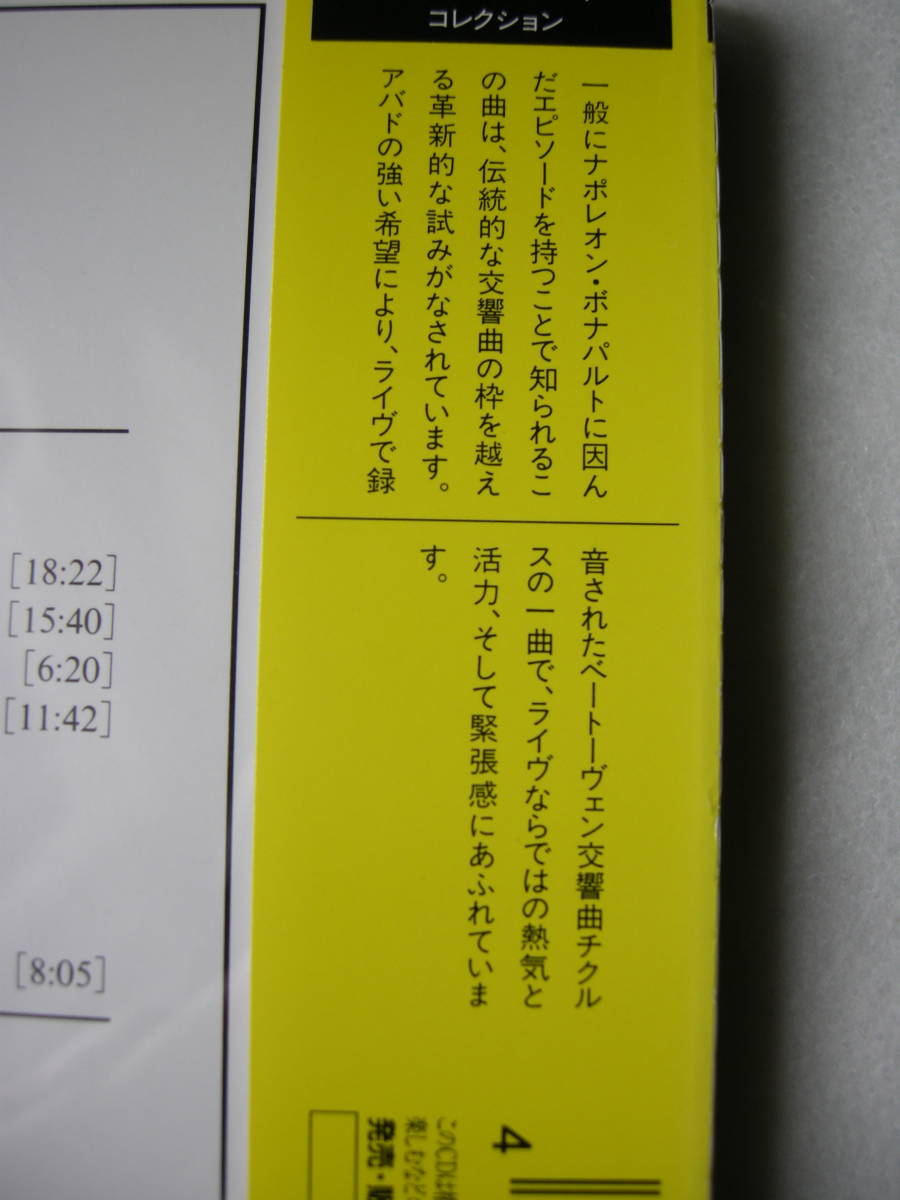 コレクション
一般にナポレオン・ボナパルトに因ん
だエピソードを持つことで知られるこ
の曲は、伝統的な交響曲の枠を越え
る革新的な試みがなされています。
アバドの強い希望により、ライヴで録
音されたベートーヴェン交響曲チクル
スの一曲で、ライヴならではの熱気と
活力、そして緊張感にあふれていま
す。
[18:22]
[15:40]
[6:20]
[11:42]
[8:05]
4
このCDは
楽しむなど
発売・